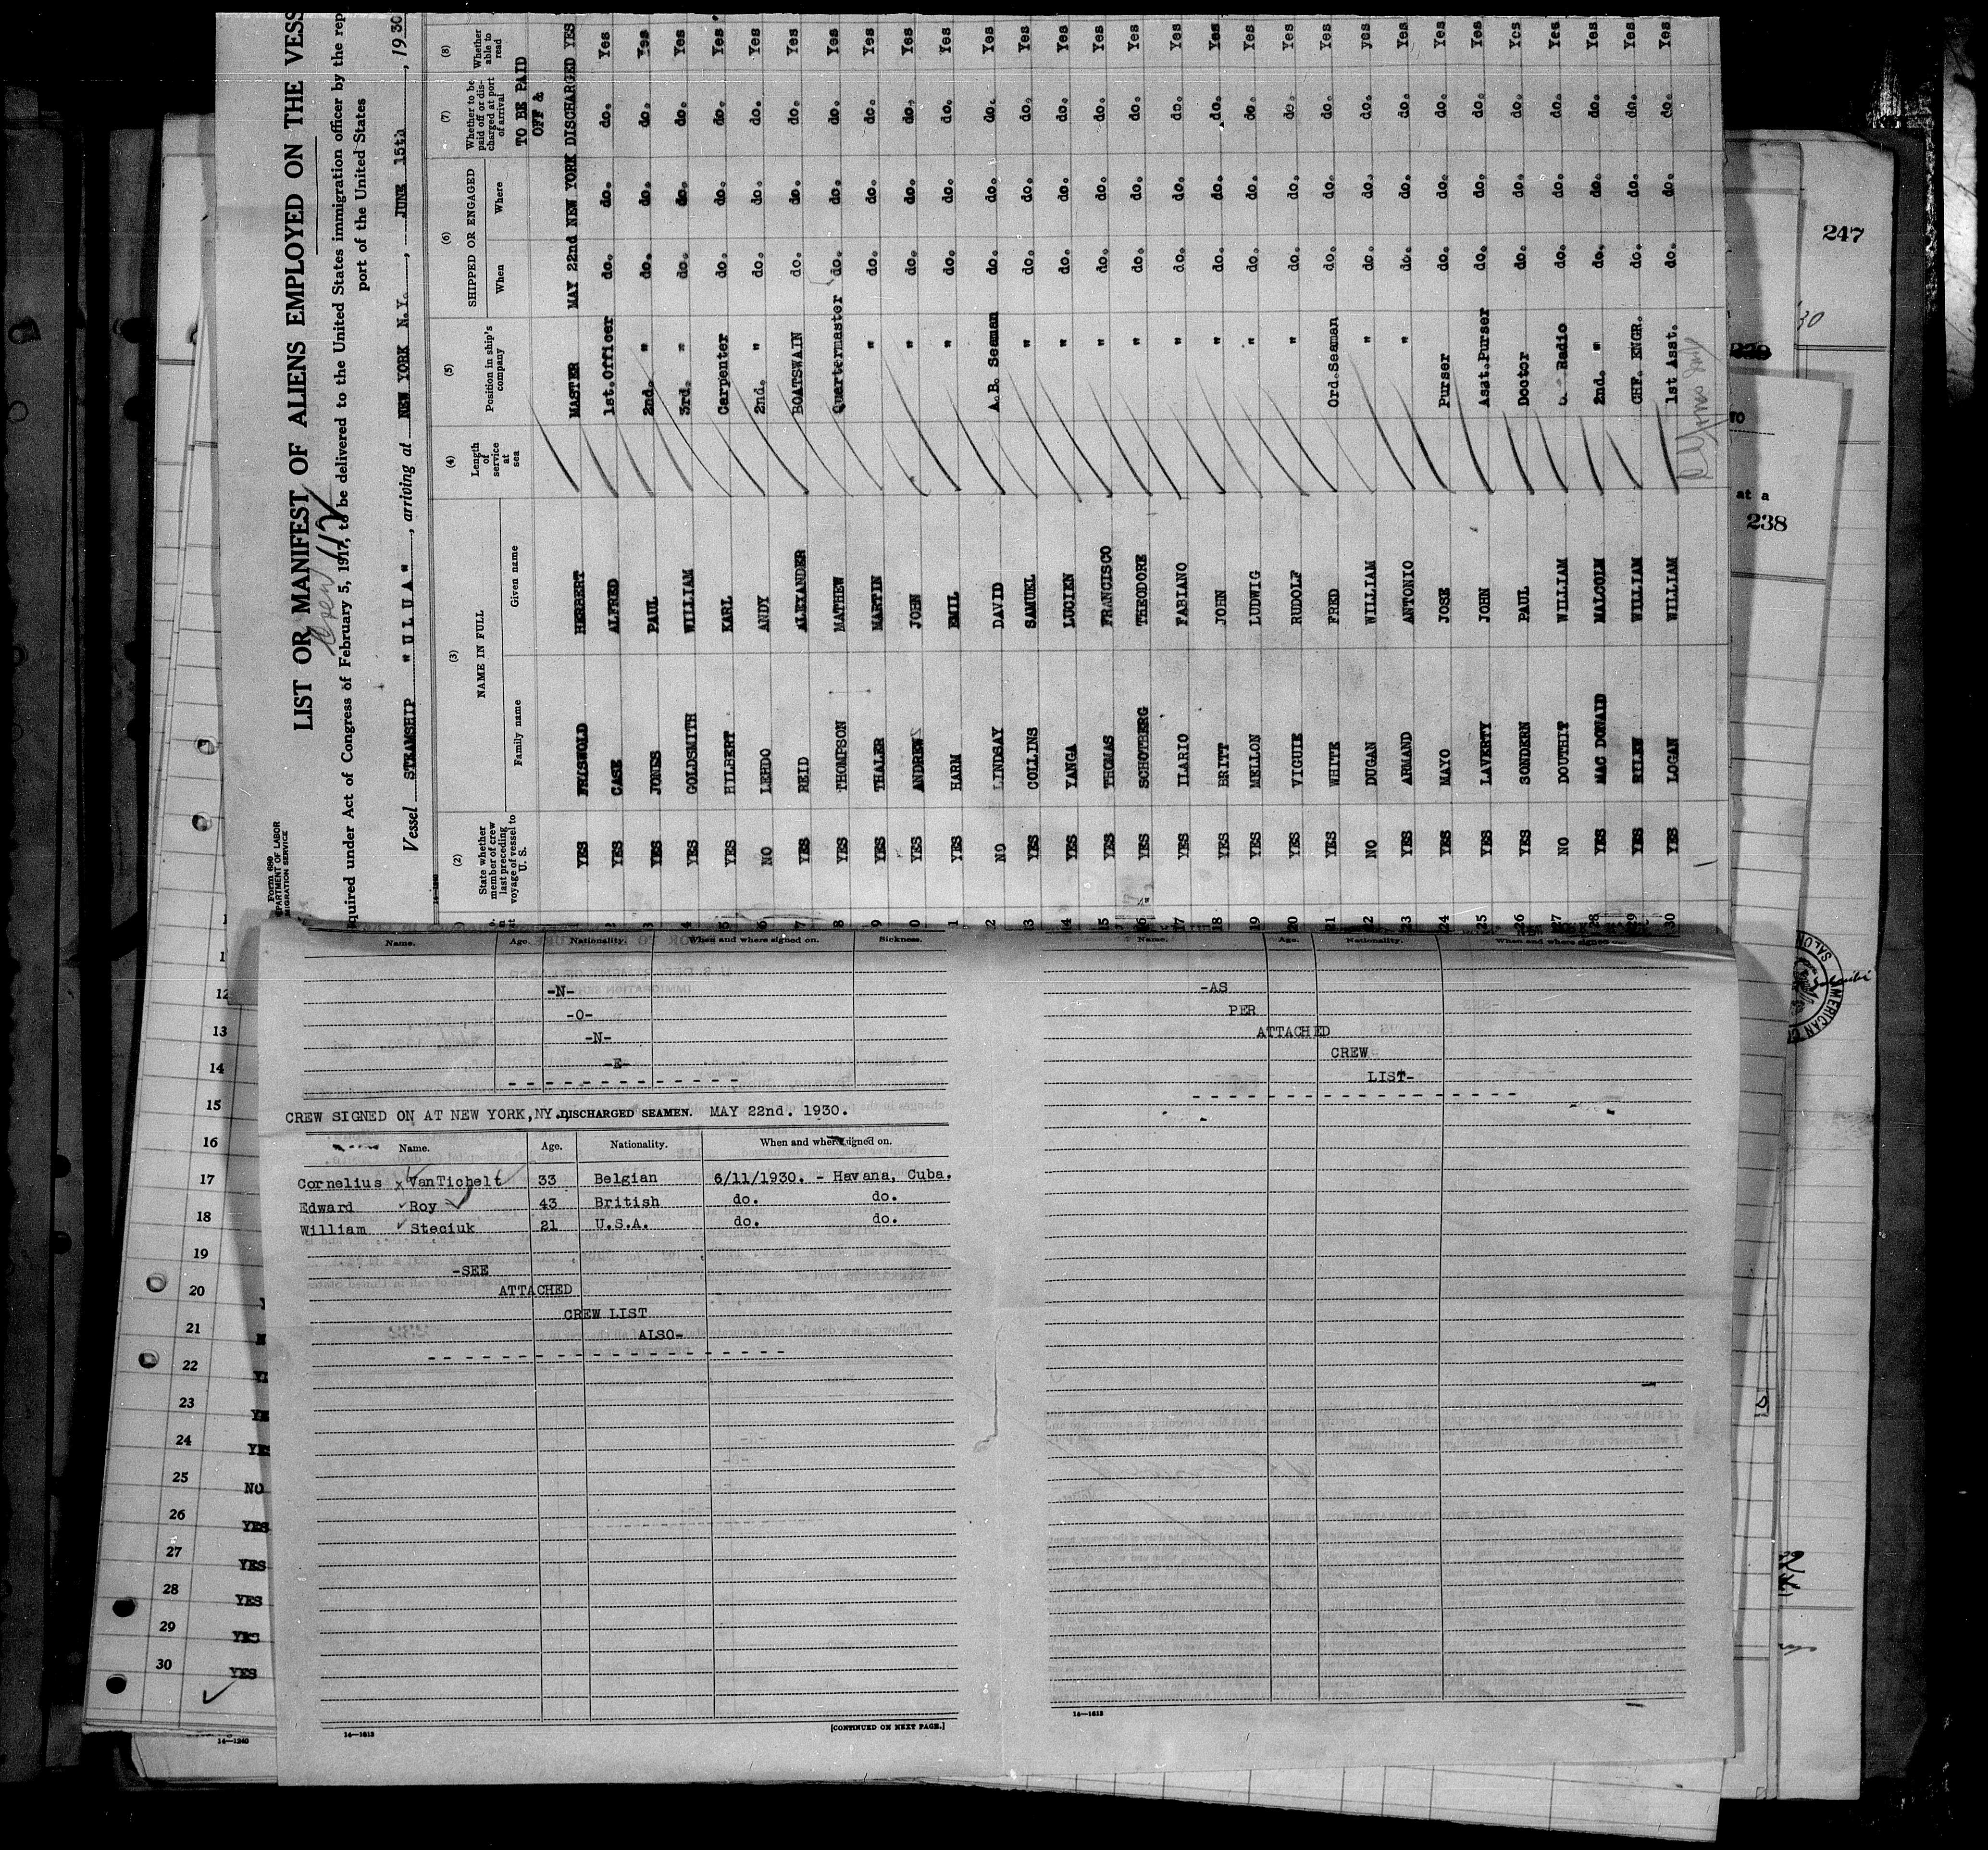 Form 689
LIST OR MANIFEST OF ALIENS EMPLOYED ON THE VESS
quired under Act of Congress of February 5, 1917, to be delivered to the United States immigration officer by the rep
port of the United States
Vessel STEAMSHIP "ULUA", arriving at NEW YORK N.Y., JUNE 15th, 1930
(2) (3) (4) (5) (6) (7) (8)
State whether member of crew last preceding voyage of vessel to U. S.
NAME IN FULL
Family name Given name
Length of service at sea
Position in ship's company
SHIPPED OR ENGAGED
When Where
Whether to be paid off or discharged at port of arrival
Whether able to read
TO BE PAID
OFF &
YES HERBERT MASTER MAY 22nd NEW YORK DISCHARGED YES
2 YES CASE ALFRED 1st.Officer do. do. do. Yes
3 YES JONES PAUL 2nd. " do. do. do. Yes
4 YES GOLDSMITH WILLIAM 3rd. " do. do. do. Yes
5 YES HILBERT KARL Carpenter do. do. do. Yes
6 NO LEHDO ANDY 2nd. " do. do. do. Yes
7 YES REID ALEXANDER BOATSWAIN do. do. do. Yes
8 YES THOMPSON MATHEW Quartermaster do. do. do. Yes
9 YES THALER MARTIN " do. do. do. Yes
0 YES ANDREWS JOHN " do. do. do. Yes
1 YES HARM EMIL " do. do. do. Yes
2 NO LINDSAY DAVID A.B. Seaman do. do. do. Yes
13 YES COLLINS SAMUEL " do. do. do. Yes
14 YES YANGA LUCIEN " do. do. do. Yes
15 YES THOMAS FRANCISCO " do. do. do. Yes
16 YES SCHOTBERG THEODORE " do. do. do. Yes
17 YES ILARIO FABIANO " do. do. do. Yes
18 YES BRITT JOHN " do. do. do. Yes
19 YES MELLON LUDWIG " do. do. do. Yes
20 YES VIGUIE RUDOLF " do. do. do. Yes
21 YES WHITE FRED Ord.Seaman do. do. do. Yes
22 NO DUGAN WILLIAM " do. do. do. yes
23 YES ARMAND ANTONIO " do. do. do. Yes
24 YES MAYO JOSE Purser do. do. do. Yes
25 YES LAVERTY JOHN Asst.Purser do. do. do. Yes
26 YES SONDERN PAUL Doctor do. do. do. Yes
27 NO DOUTHIT WILLIAM Radio do. do. do. Yes
28 YES MAC DONALD MALCOLM 2nd. " do. do. do. Yes
29 YES RILEY WILLIAM CHF. ENGR. do. do. do. Yes
30 YES LOGAN WILLIAM 1st Asst. do. do. do. Yes
247
238
at a
Name. Age. Nationality. When and where signed on. Sickness.
-N-
-O-
-N-
-E-
CREW SIGNED ON AT NEW YORK,NY. DISCHARGED SEAMEN. MAY 22nd. 1930.
Name. Age. Nationality. When and where signed on.
Cornelius x VanTichelt 33 Belgian 6/11/1930. - Havana, Cuba.
Edward Roy 43 British do. do.
William Steciuk 21 U.S.A. do. do.
-SEE
ATTACHED
CREW LIST
ALSO-
14—1613
[CONTINUED ON NEXT PAGE.]
Name. Age. Nationality. When and where signed on.
-AS
PER
ATTACHED
CREW
LIST-
14—1613
12
13
14
15
16
17
18
19
20
21
22
23
24 YES
25 NO
26 YES
27 YES
28 YES
29 YES
30 YES
14—1240